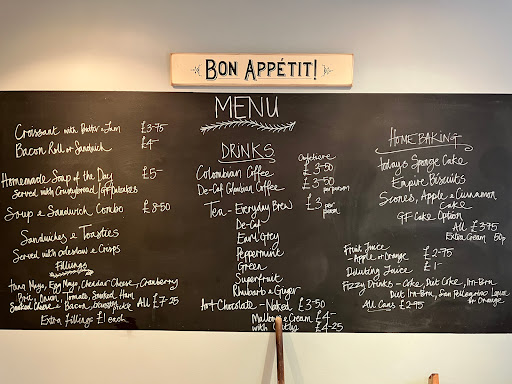 BON APPÉTIT!
MENU
Croissant with Butter & Jam £3-75
Bacon Roll or Sandwich £4-
Homemade Soup of the Day £5-
Served with Crustybread / GF Oatcakes
Soup & Sandwich Combo £8-50
Sandwiches & Toasties
Served with coleslaw & Crisps
Fillings
Tuna Mayo, Egg Mayo, Cheddar Cheese, Cranberry
Brie, Onion, Tomato, Smoked Ham
Smoked Cheese & Bacon, All £7-25
Extra fillings £1 each
DRINKS
Cafetiere
Colombian Coffee £3-50
De-Caf Colombian Coffee £3-50
per person
Tea - Everyday Brew £3 per person
De-Caf
Earl Grey
Peppermint
Green
Superfruit
Rhubarb & Ginger
Hot Chocolate - Naked £3-50
Mallows & Cream £4-
with £4-25
HOMEBAKING
Todays Sponge Cake
Empire Biscuits
Scones, Apple & Cinnamon
Cake
GF Cake Option
All £3.75
Extra Cream 50p
Fruit Juice
- Apple or Orange £2-75
Diluting Juice £1-
Fizzy Drinks - Coke, Diet Coke, Irn-Bru
Diet Irn-Bru, San Pellegrino Lemon
or Orange
All Cans £2-95